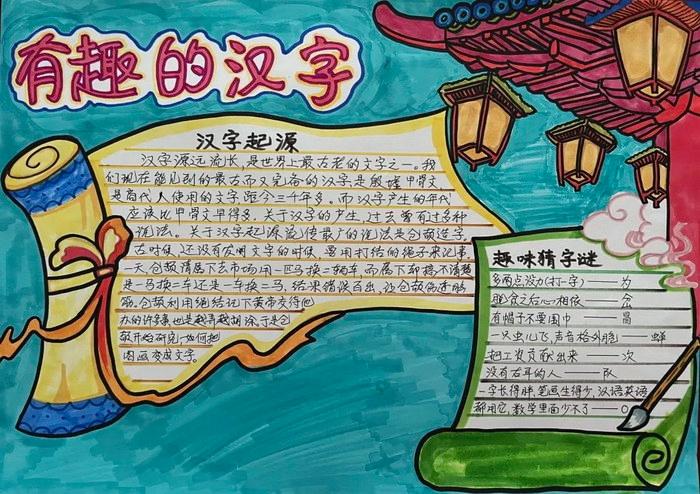 有趣的汉字
汉字起源
汉字源远流长,是世界上最古老的文字之一。我
们现在能见到的最古而又完备的汉字是殷墟甲骨文
是商代人使用的文字距今三千年多。而汉字产生的年代
应该比甲骨文早得多。关于汉字的产生,过去曾有过多种
说法。关于汉字起源流传最广的说法是仓颉造字。
古时候,还没有发明文字的时候,要用打结的绳子来记事,
一天,仓颉属下去市场用一匹马换二辆车,而属下却搞不清楚
是一马换二车还是一车换二马,结果错误百出,让仓颉伤透脑
筋,仓颉利用绳结记下黄帝交待他
办的许多事也是越弄越胡涂,于是仓
颉开始研究如何把
图画变成文字。
趣味猜字谜
多两点没力(打一字)——为
饱食之后心相依——
有帽子不要围巾——冒
一只虫儿飞,声音格外脆——蝉
把工资贡献出来——次
没有右耳的人——队
一字长得胖,笔画生得少,汉语英语
都用它,数学里面少不了——O